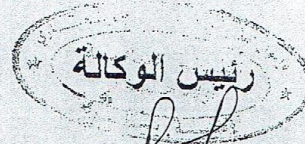 رئيس الوكالة